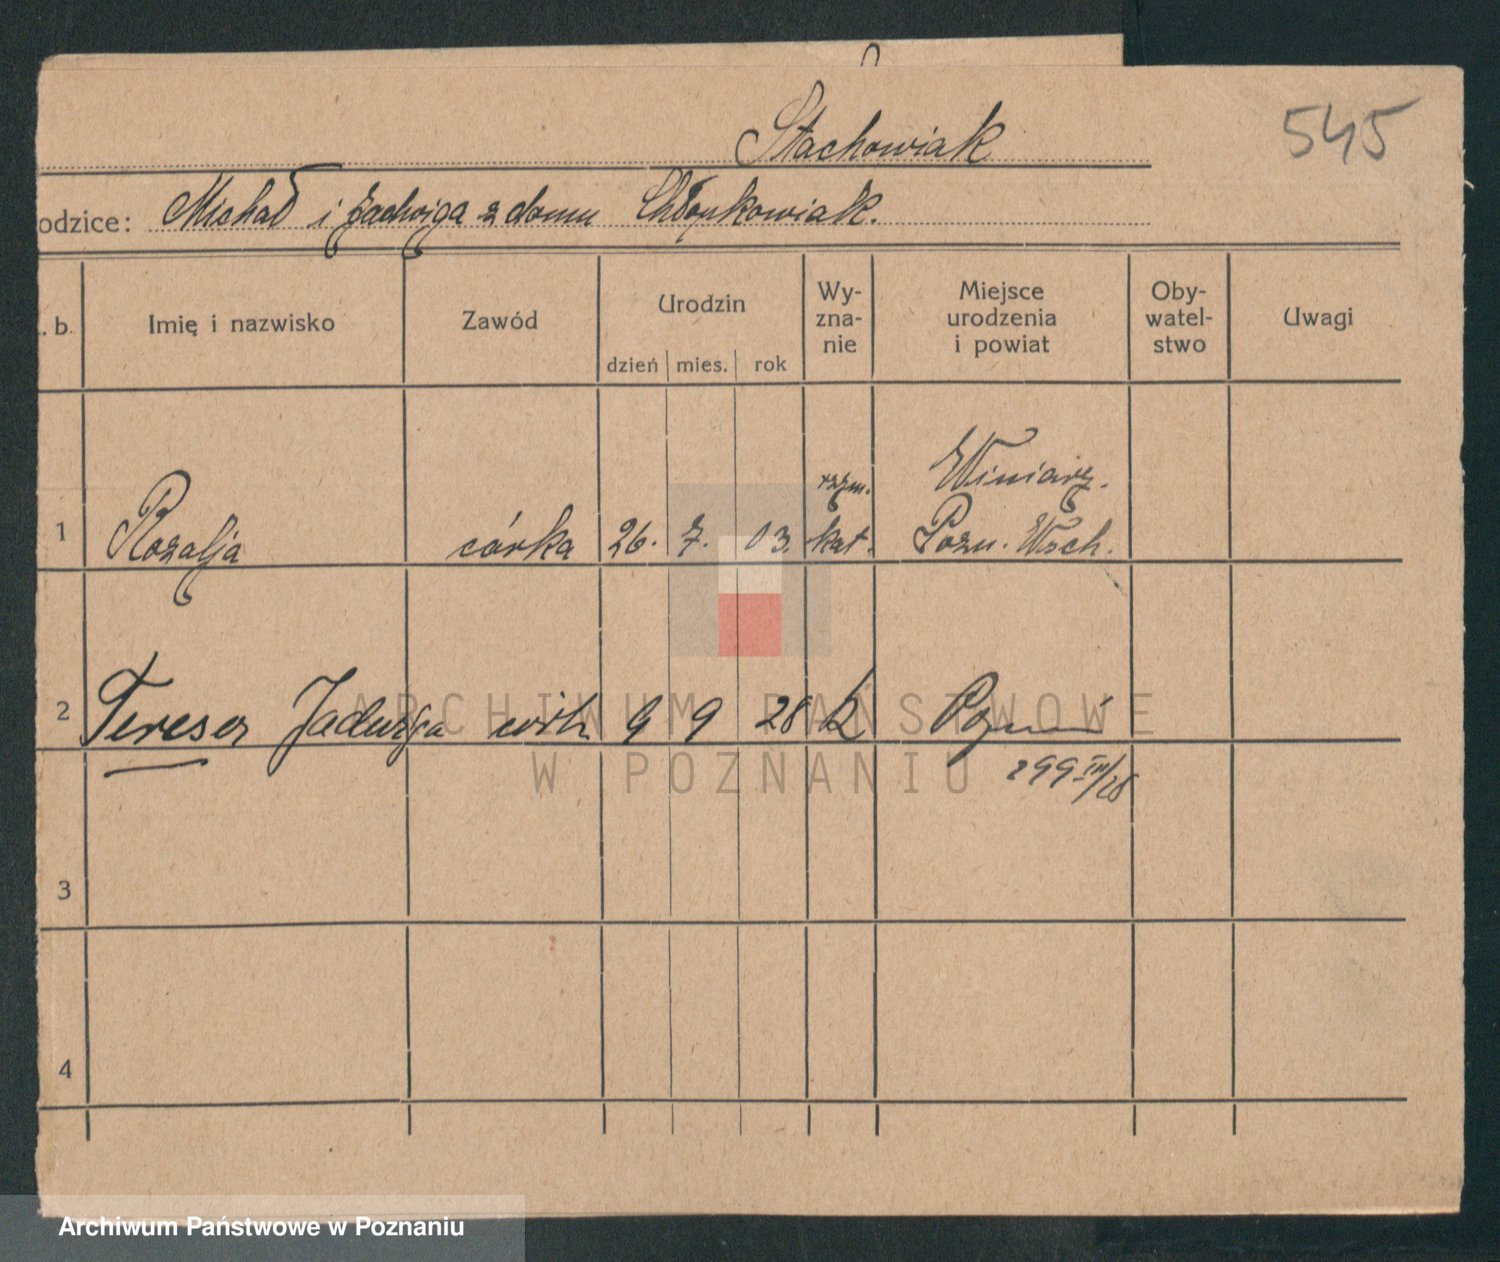 Stachowiak
545
odzice: Michał i Jadwiga z domu Chłopkowiak.
. b. Imię i nazwisko Zawód Urodzin dzień mies. rok Wy-zna-nie Miejsce urodzenia i powiat Oby-watel-stwo Uwagi
Winiary.
rzym.
1 Rozalja córka 26. 7. 03. kat. Pozn. Wsch.
2 Teresa Jadwiga córk 9 9 28 k Poznań
299 III/28
3
4
ARCHIWUM PAŃSTWOWE
W POZNANIU
Archiwum Państwowe w Poznaniu